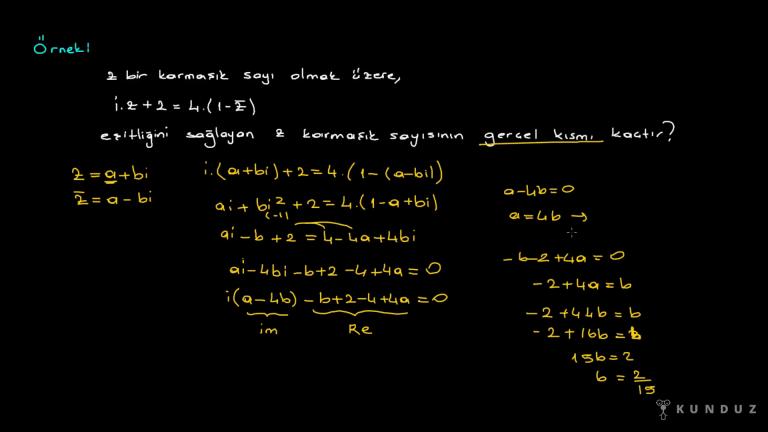 Örnek!
z bir karmaşık sayı olmak üzere,
i.z+2=4.(1-z̅)
eşitliğini sağlayan z karmaşık sayısının gerçel kısmı kaçtır?
z=a+bi
z̅=a-bi
i.(a+bi)+2=4.(1-(a-bi))
ai+bi²+2=4.(1-a+bi)
(-1)
ai-b+2=4-4a+4bi
ai-4bi-b+2-4+4a=0
i(a-4b)-b+2-4+4a=0
im Re
a-4b=0
a=4b →
-b-2+4a=0
-2+4a=b
-2+4.4b=b
-2+16b=b
15b=2
b=2/15
KUNDUZ